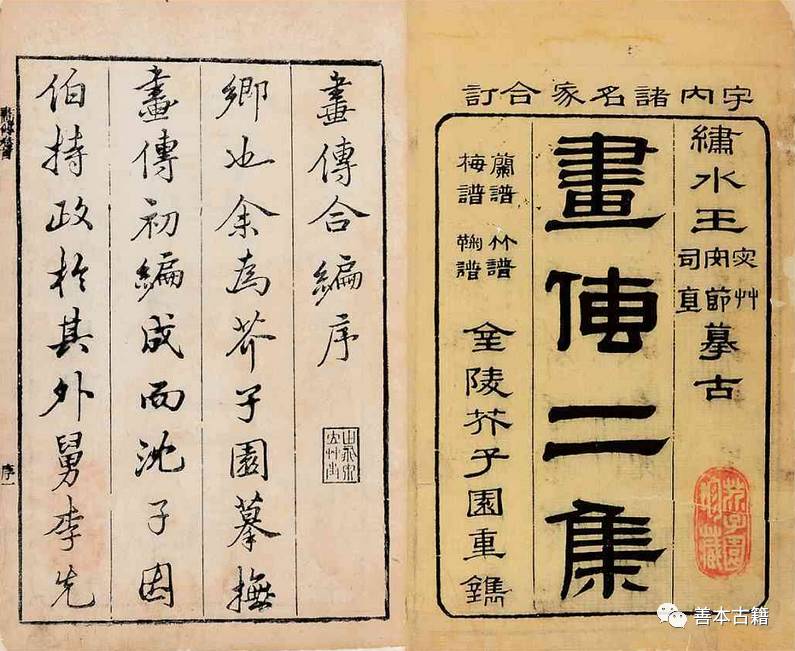 宇内諸名家合訂
繡水王宓艸安節司直摹古
畫傳二集
蘭譜 竹譜
梅譜 鞠譜
金陵芥子園重鐫
畫傳合編序
鄉也余為芥子園摹撫
畫傳初編成而沈子因
伯持政於其外舅李先
序一
善本古籍